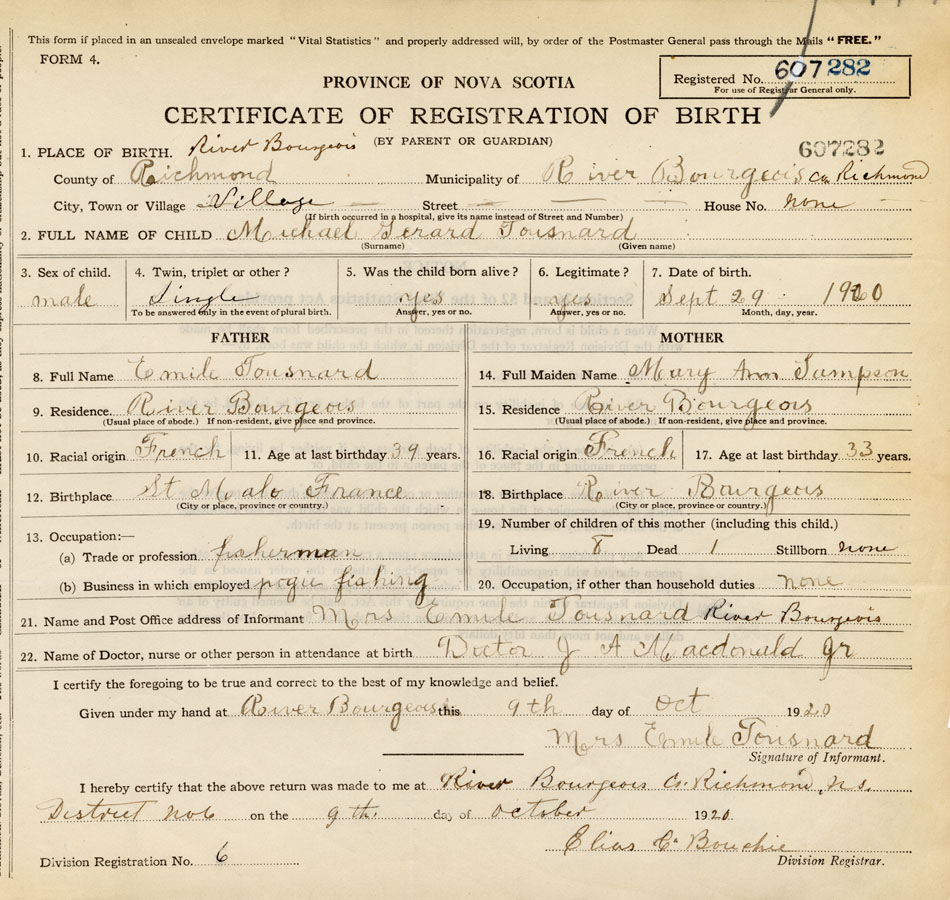 This form if placed in an unsealed envelope marked "Vital Statistics" and properly addressed will, by order of the Postmaster General pass through the Mails "FREE."
FORM 4.
PROVINCE OF NOVA SCOTIA
Registered No. 607282
For use of Registrar General only.
CERTIFICATE OF REGISTRATION OF BIRTH
(BY PARENT OR GUARDIAN)
607282
1. PLACE OF BIRTH. River Bourgeois
County of Richmond Municipality of River Bourgeois Co Richmond
City, Town or Village Village Street House No. none
(If birth occurred in a hospital, give its name instead of Street and Number)
2. FULL NAME OF CHILD Michael Gerard Tousnard
(Surname) (Given name)
3. Sex of child. 4. Twin, triplet or other? 5. Was the child born alive? 6. Legitimate? 7. Date of birth.
male Single yes yes Sept 29 1920
To be answered only in the event of plural birth. Answer, yes or no. Answer, yes or no. Month, day, year.
FATHER MOTHER
8. Full Name Emile Tousnard 14. Full Maiden Name Mary Ann Sampson
9. Residence. River Bourgeois 15. Residence River Bourgeois
(Usual place of abode.) If non-resident, give place and province. (Usual place of abode.) If non-resident, give place and province.
10. Racial origin French 11. Age at last birthday 39 years. 16. Racial origin French 17. Age at last birthday 33 years.
12. Birthplace St Malo France 18. Birthplace River Bourgeois
(City or place, province or country.) (City or place, province or country.)
13. Occupation:— 19. Number of children of this mother (including this child.)
(a) Trade or profession fisherman Living 8 Dead 1 Stillborn none
(b) Business in which employed pogie fishing 20. Occupation, if other than household duties none
21. Name and Post Office address of Informant Mrs Emile Tousnard River Bourgeois
22. Name of Doctor, nurse or other person in attendance at birth Doctor J A Macdonald Jr
I certify the foregoing to be true and correct to the best of my knowledge and belief.
Given under my hand at River Bourgeois this 9th day of Oct 1920
Mrs Emile Tousnard
Signature of Informant.
I hereby certify that the above return was made to me at River Bourgeois Co. Richmond, N.S.
District No 6 on the 9th day of October 1920.
Elias C. Bouchie
Division Registrar.
Division Registration No. 6